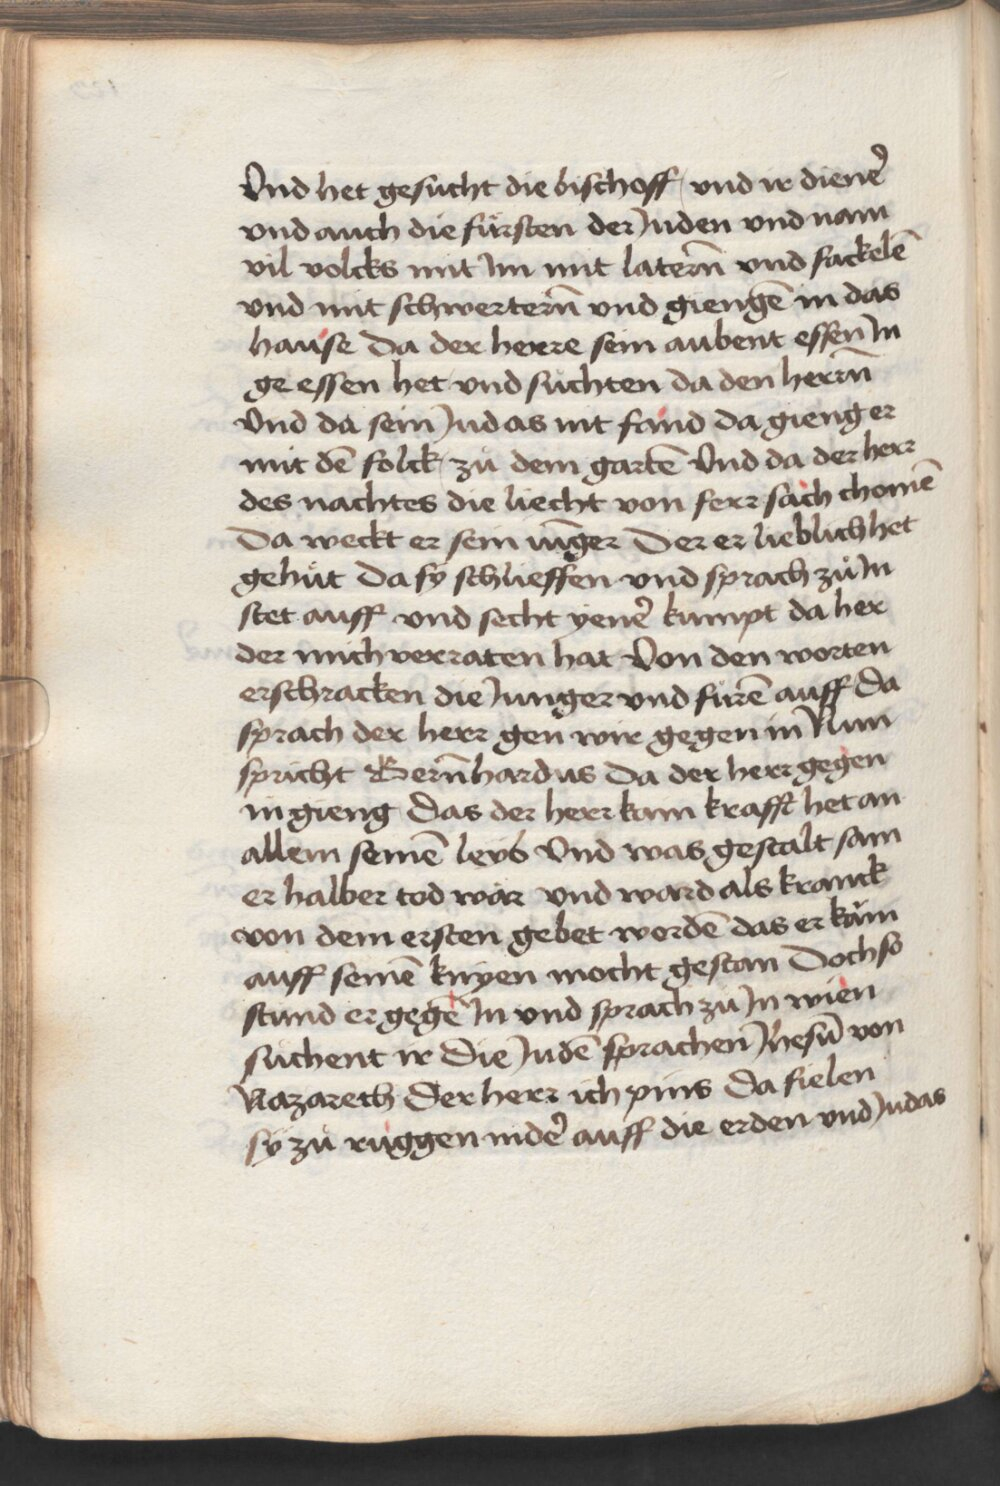 Vnd het gesucht die bischoff vnd ir dienẽ
vnd auch die fürsten der Juden vnd nam
vil volcks mit Im mit laterñ vnd fackelẽ
vnd mit schwerterñ vnd giengẽ in das
hause Da der herre sein aubent essen In
ge essen het vnd suchten da den herrñ
Vnd da sein Judas nit fand da gieng er
mit dẽ folck zů dem gartẽ Vnd da der herr
des nachtes die liecht von ferr sach chomẽ
Da weckt er sein iũger Der er lieblich het
gehůt Da sÿ schlieffen vnd sprach zů In
stet auff vnd secht yenẽ kumpt da her
der mich verraten hat Von den worten
erschracken die Junger vnd fůrẽ auff Da
sprach der herr gen wir gegen in Nun
spricht Berñhardus Da der herr gegen
in gieng Das der herr kam krafft het an
allem seinẽ leyb Vnd was gestalt sam
er halber tod wär vnd ward als kranck
von dem ersten gebet wordẽ das er kům
auff seinẽ knyen mocht gestan Doch so
stund er gegẽ In vnd sprach zů In wien
suchent ir Die Judẽ sprachen Jhesũ von
Nazareth Der herr ich pins Da fielen
sÿ zů ruggen nidẽ auff die erden vnd Judas